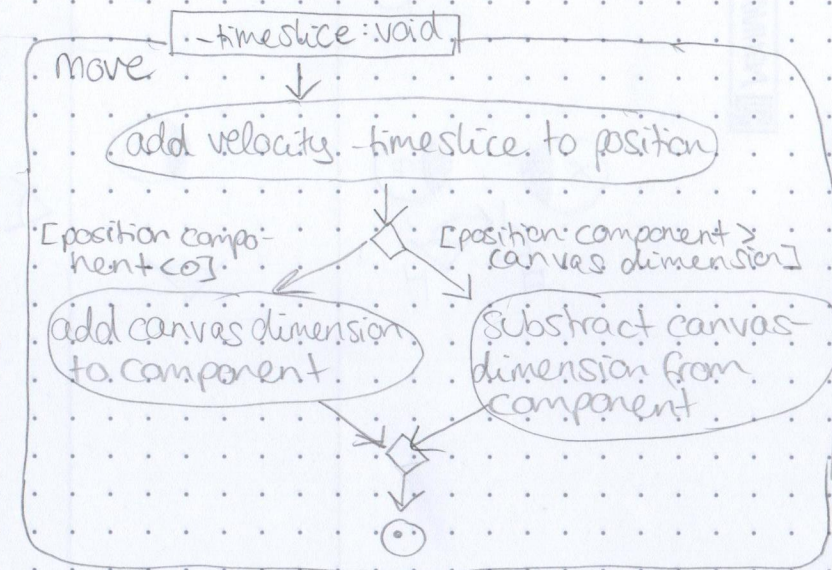 _timeslice:void
move
add velocity_timeslice to position
[position compo-
nent<0]
[position component>
canvas dimension]
add canvas dimension
to component
substract canvas-
dimension from
component